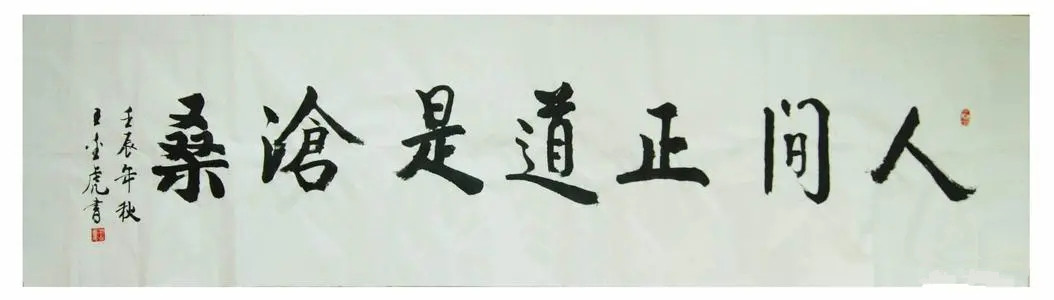 人間正道是滄桑
壬辰年秋
王金虎書